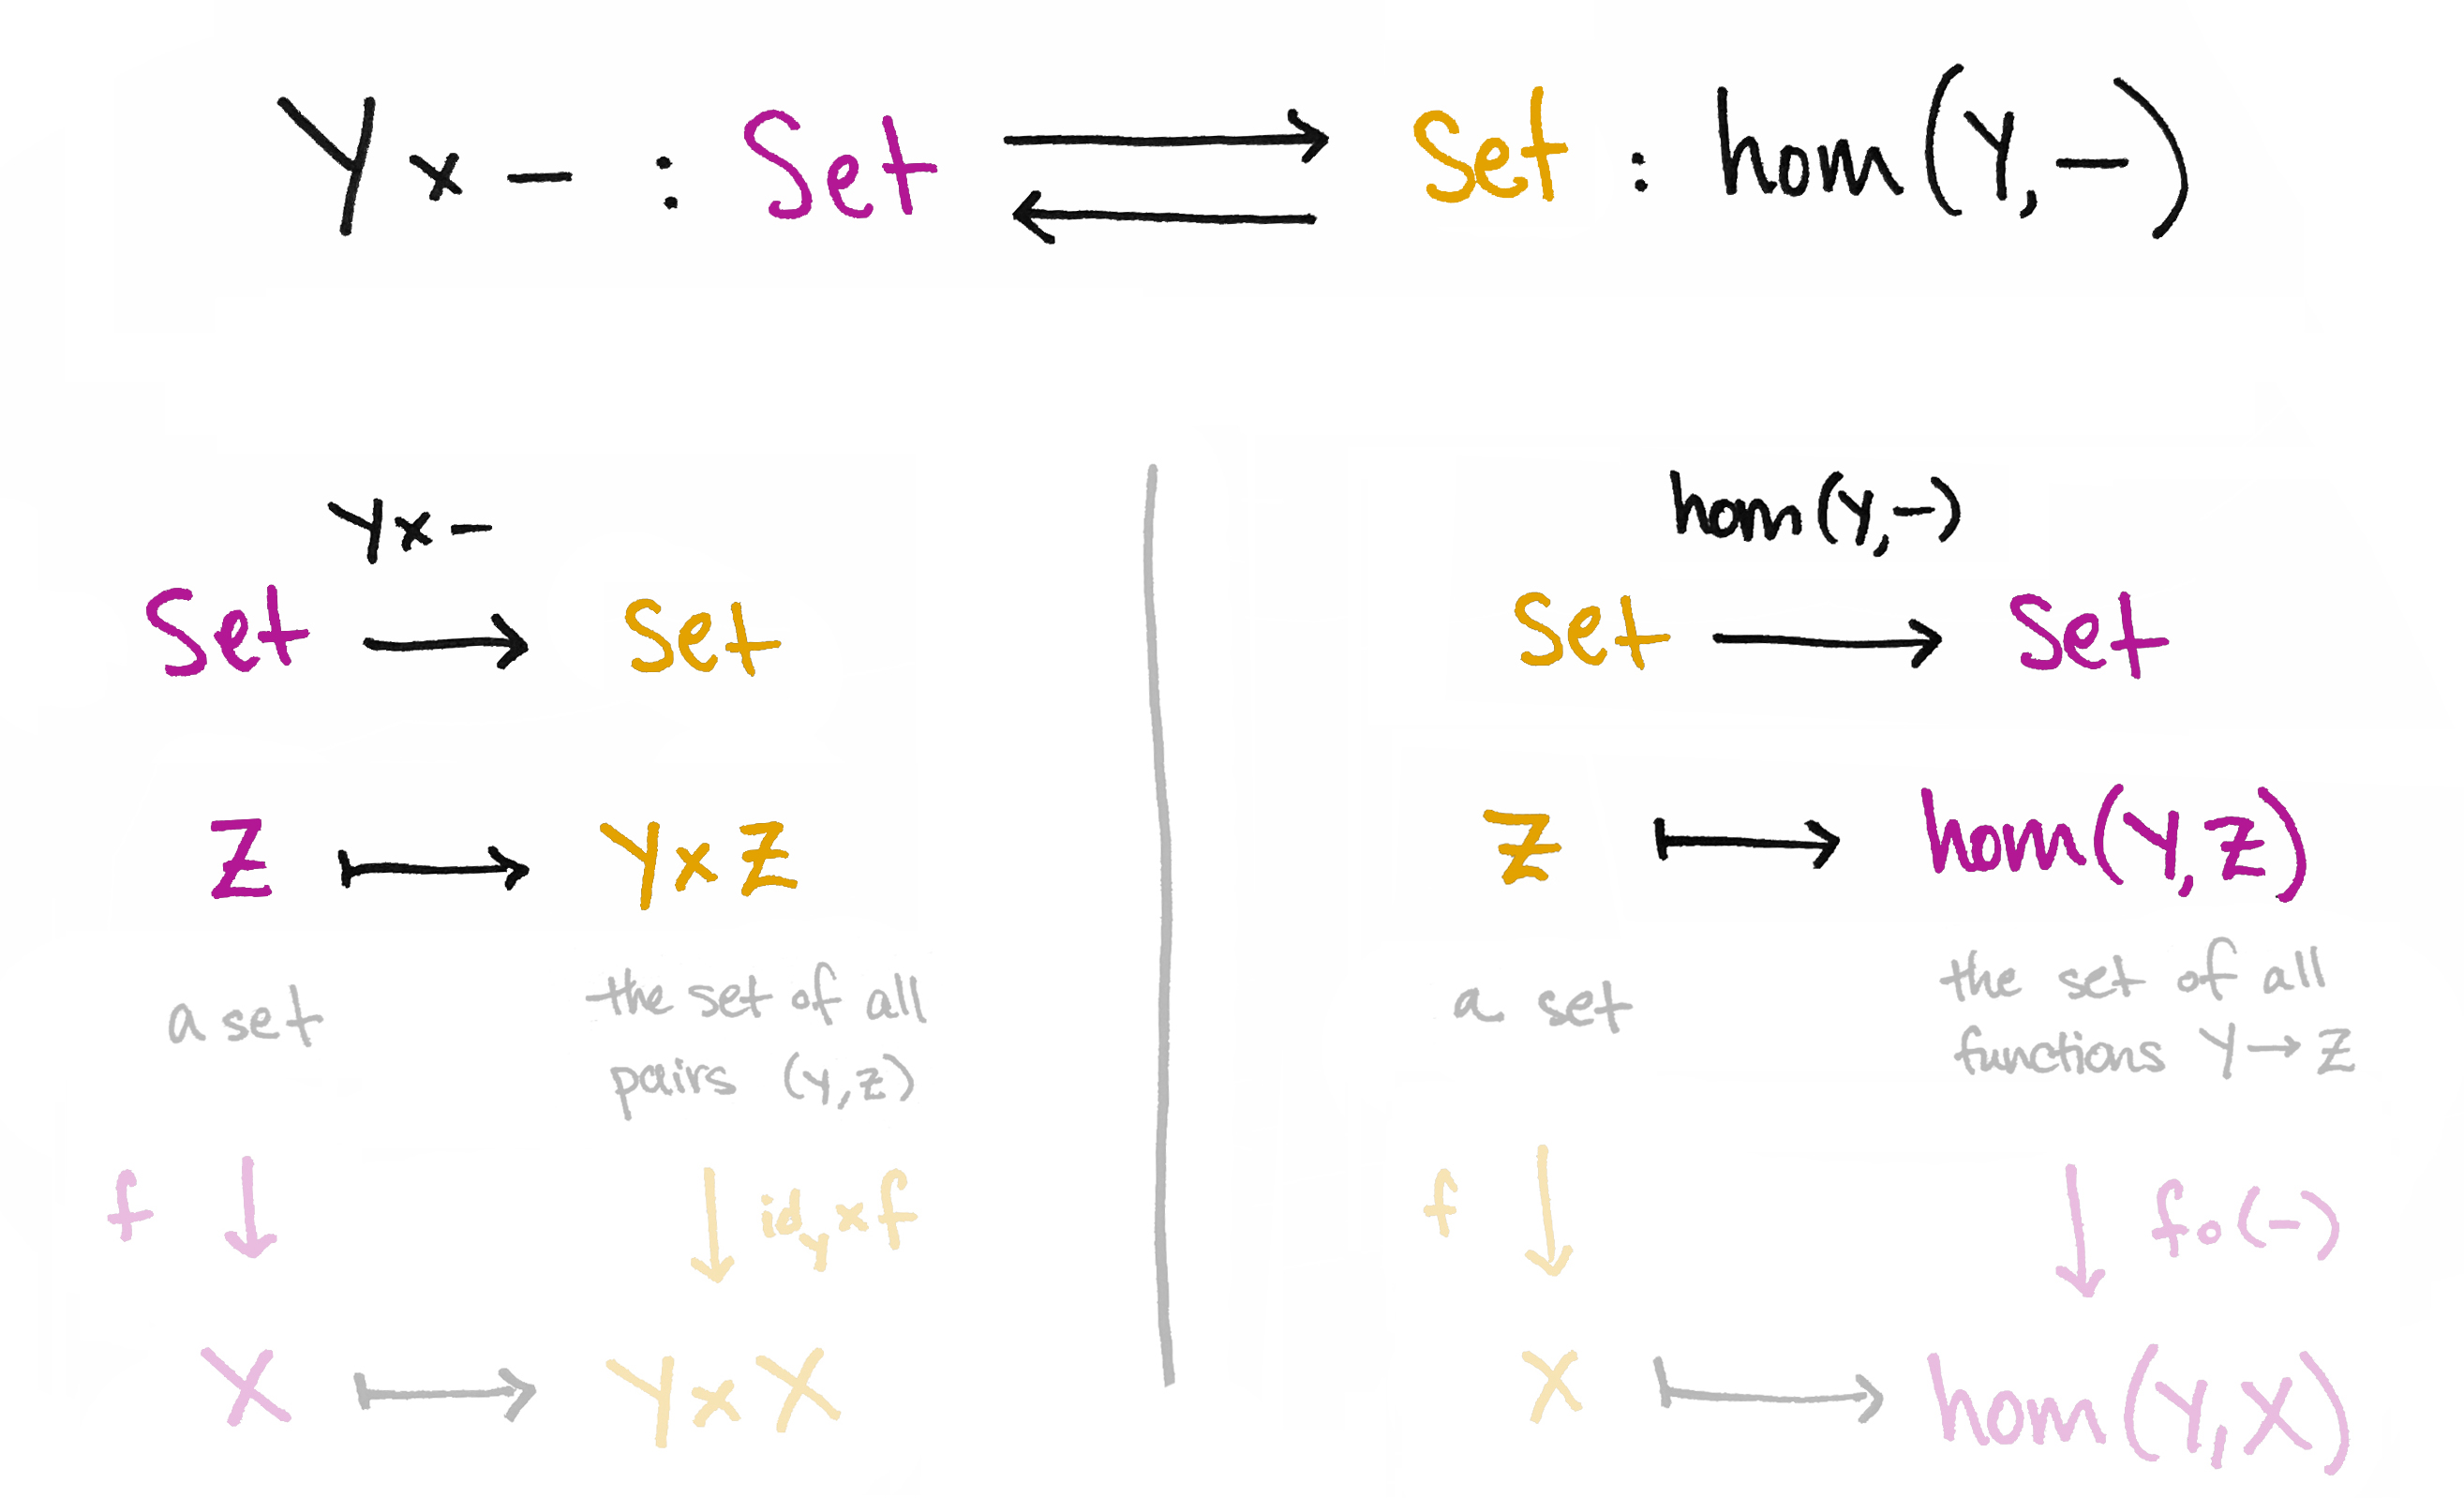 Y × − : Set ⇄ Set : hom(Y,−)
Y×−
Set → Set
Z ↦ Y×Z
a set
the set of all
pairs (y,z)
f ↓ ↓ id_Y×f
X ↦ Y×X
hom(Y,−)
Set → Set
Z ↦ hom(Y,Z)
a set
the set of all
functions Y→Z
f ↓ ↓ f∘(−)
X ↦ hom(Y,X)